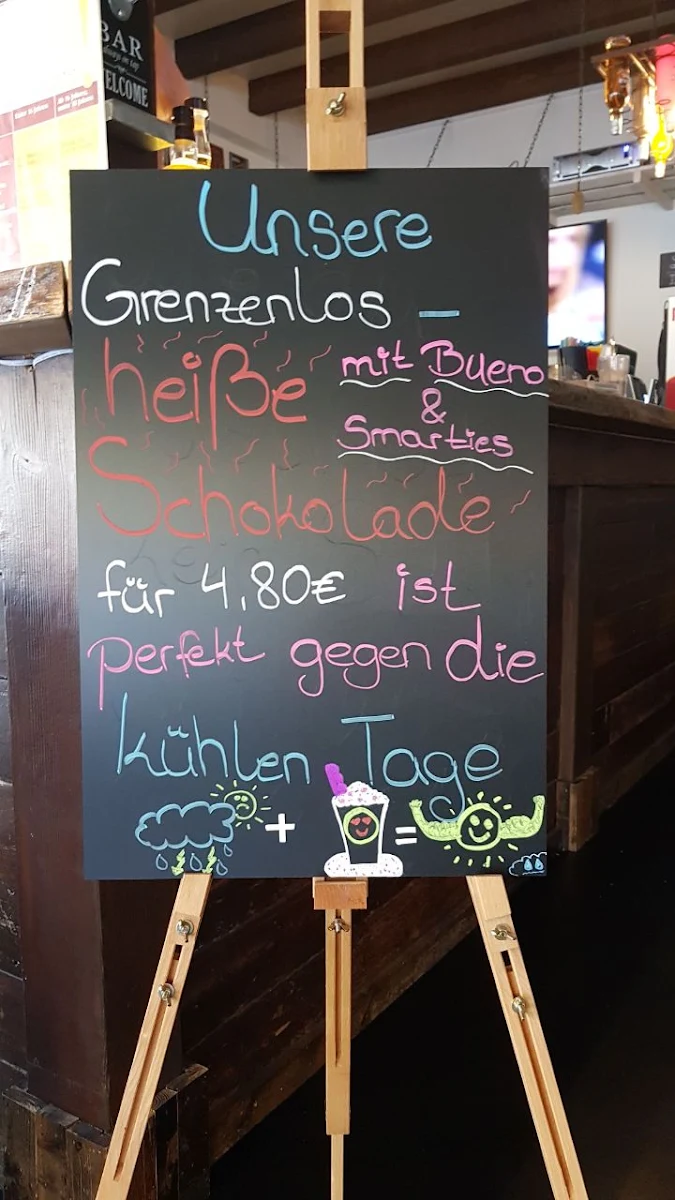 BAR
WELCOME
Unsere
Grenzenlos –
heiße mit Bueno
&
Smarties
Schokolade
für 4,80€ ist
perfekt gegen die
kühlen Tage
+ =